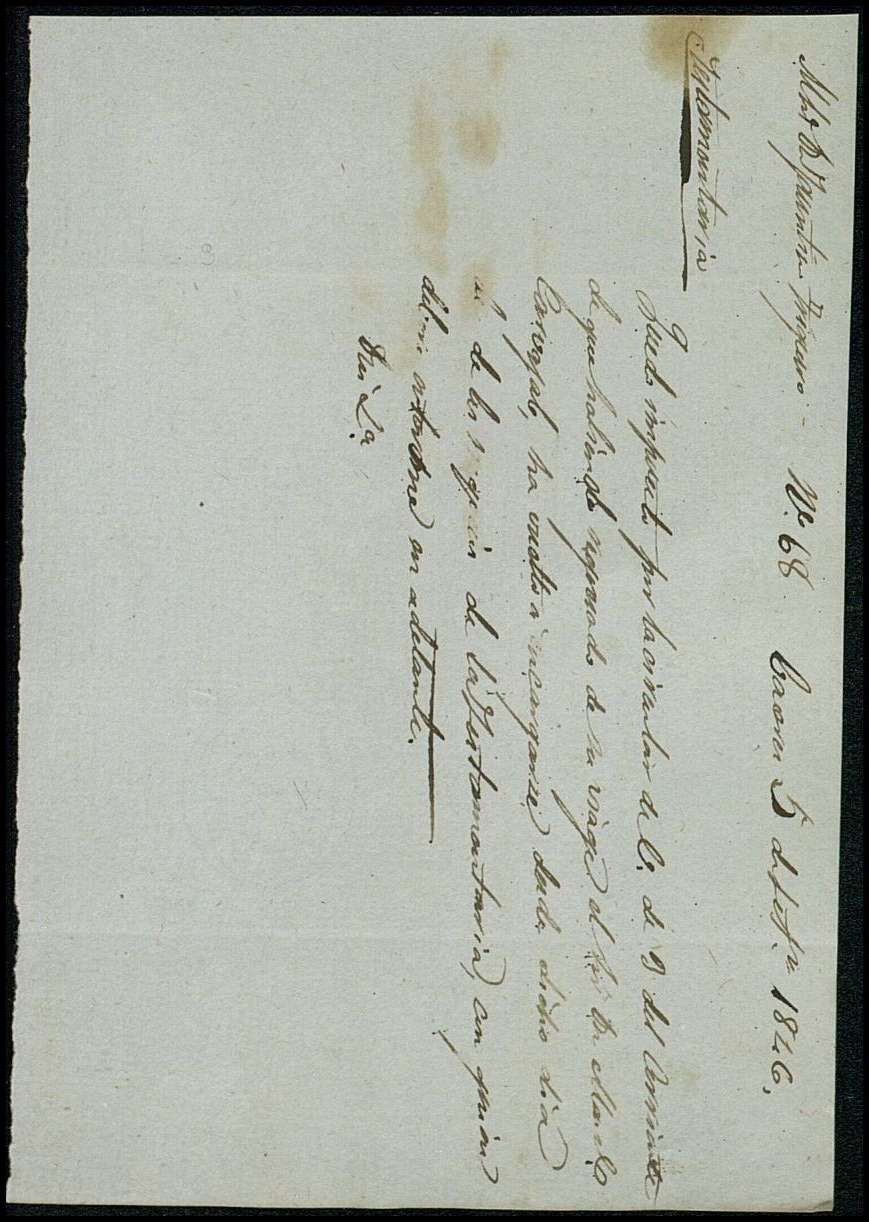 N.º 68 5 de 1846.
Testamentaria
Quedo impuesto por la circular de V. de 3 del corriente
de que habiendo regresado de su viage el Sor Dn Manuel
Carvajal, ha vuelto á encargarse desde dicho dia
de los de la Testamentaria, con quien
debere entenderme en adelante.
Dios &.ª